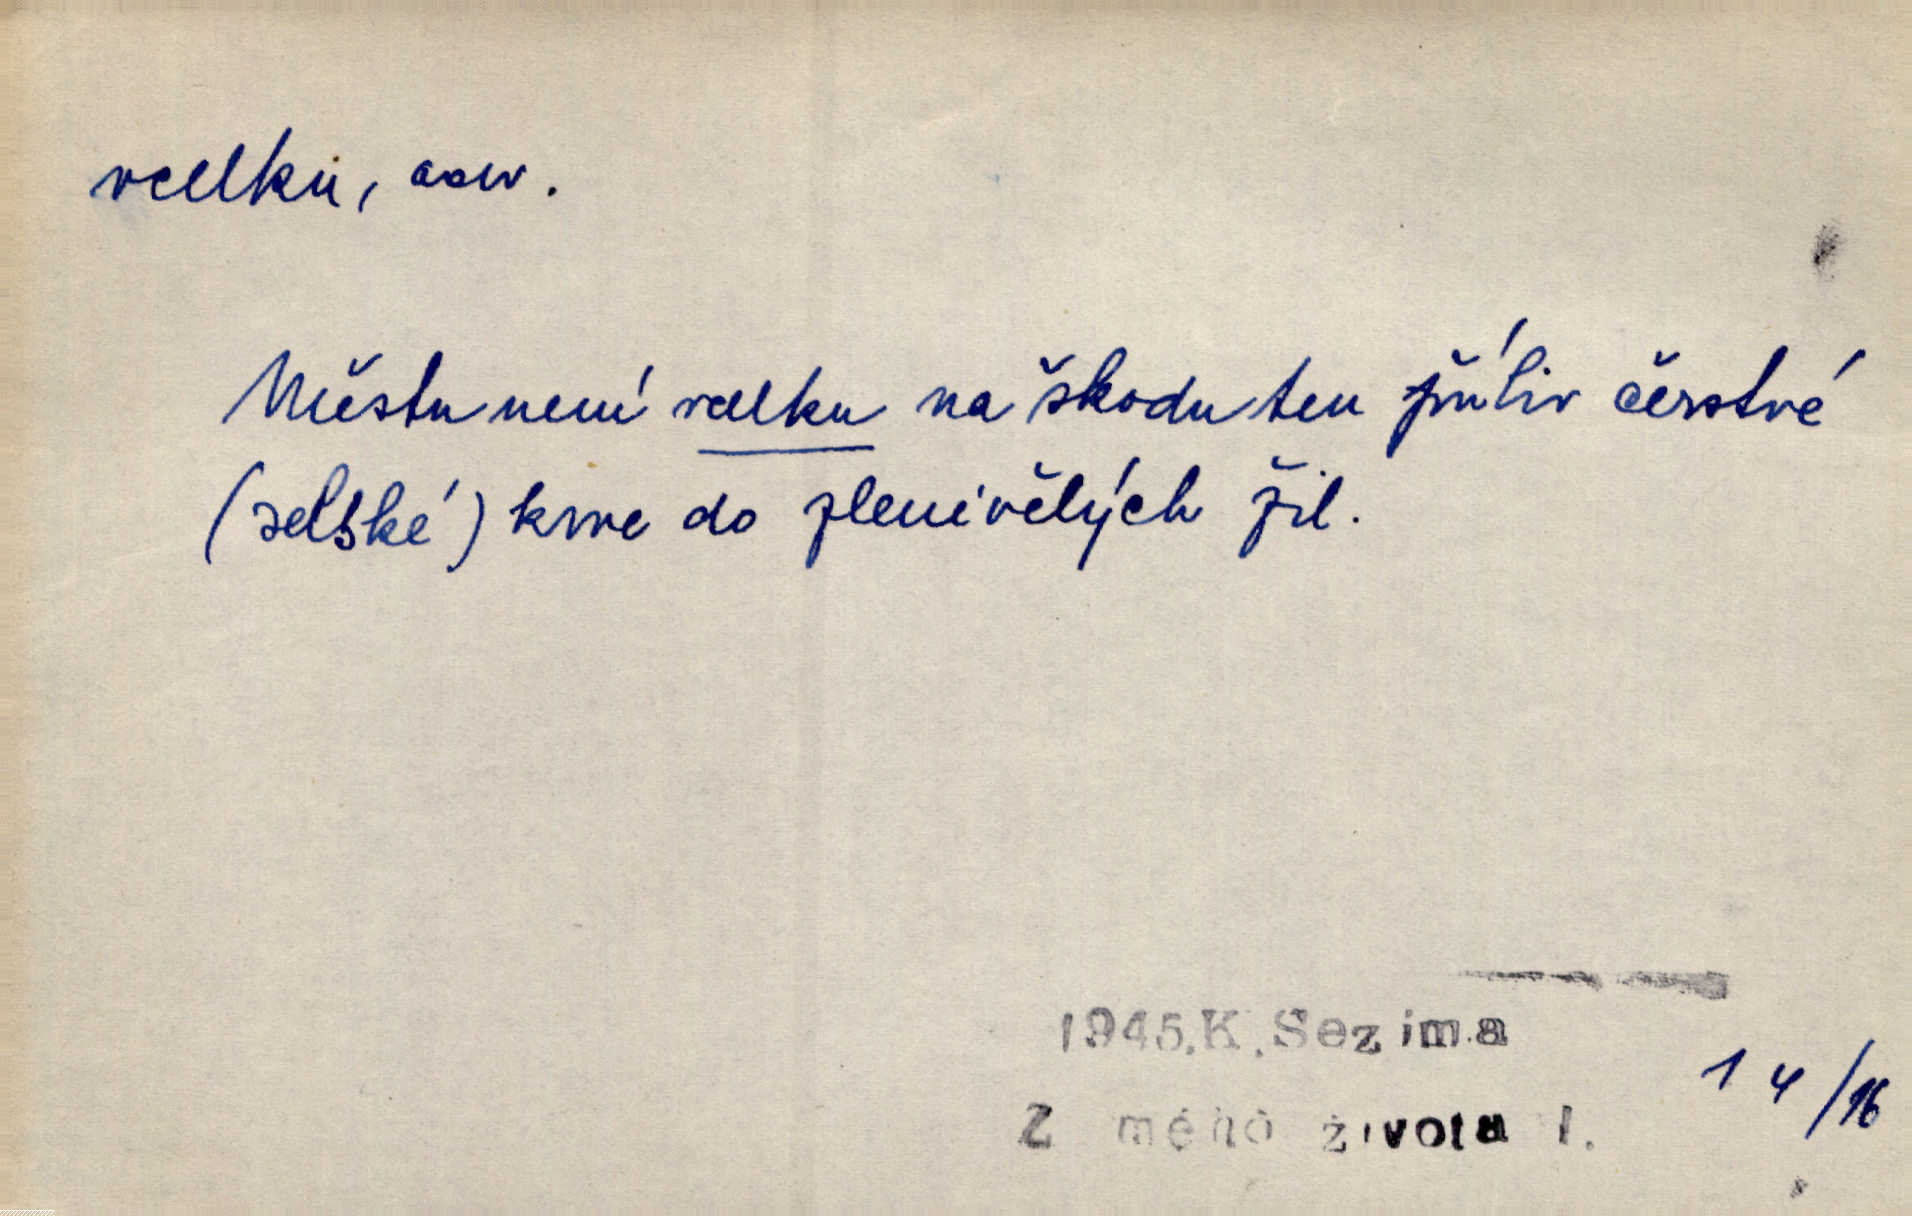 vcelku, adv.
Městu není vcelku na škodu ten příliv čerstvé
(selské) krve do zlenivělých žil.
1945.K.Sezima
Z mého života I.
14/16